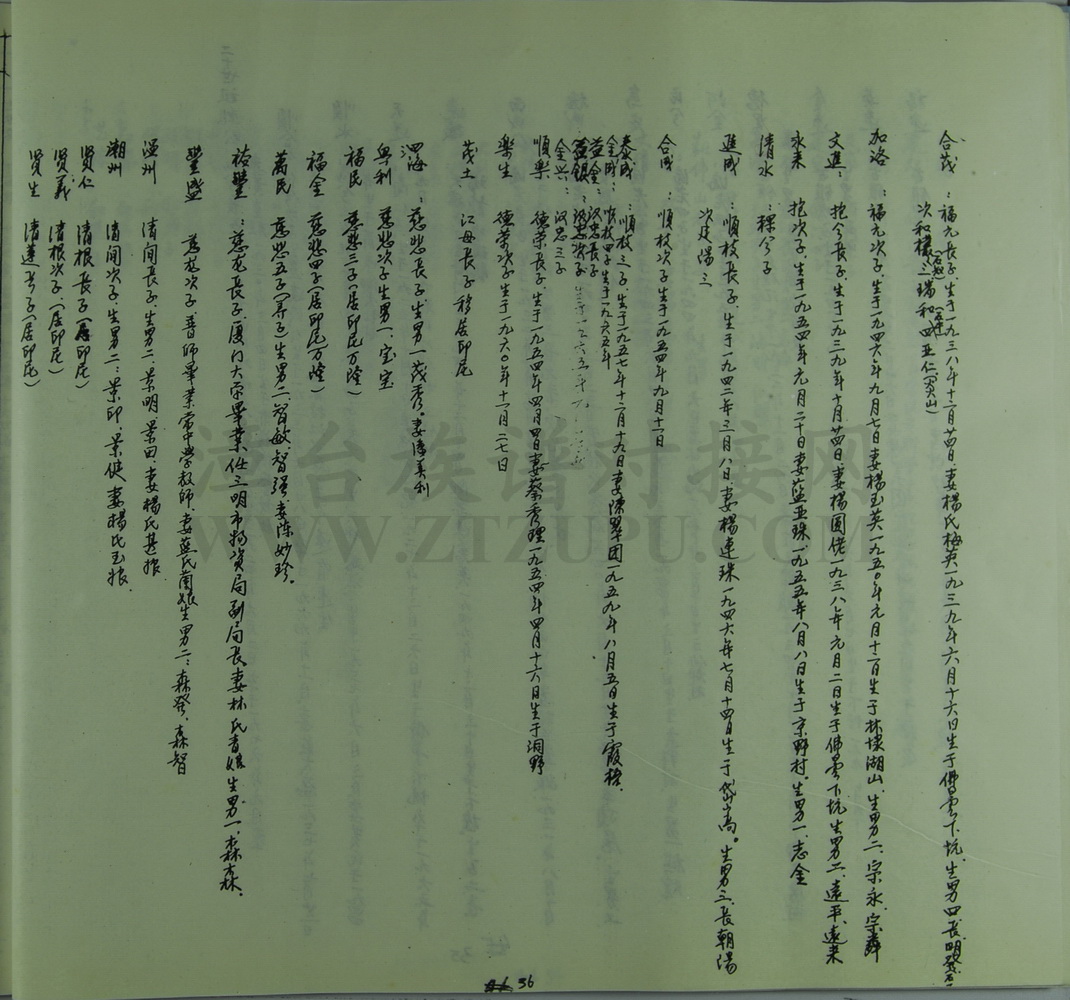 合茂：福九長子，生于一九三八年十二月廿四日妻楊氏梅英一九三九年六月十六日生于佛曇下坑，生男四，長明發
次和樓 三瑞和 四亚仁
加洛：福九次子，生于一九四六年九月七日妻楊玉英一九五〇年元月十三日生于林埭湖山，生男二，宗永，宗輝
文進：抱今長子，生于一九三九年十月廿四日妻楊圓佬一九三八年元月二日生于佛曇下坑生男二，遠平，遠来
永来 抱次子，生于一九五四年元月二十日妻藍亚珠一九五五年八月八日生于京野村，生男一，志金
清水：粿兮子
進成：順枝長子，生于一九四二年三月八日，妻楊連珠一九四六年七月十四日生于岱嵩。生男三，長朝陽
次建陽 三
合成：順枝次子生于一九五四年九月十一日
泰成：順枝三子，生于一九五七年十二月十九日妻陳翠团一九五九年八月五日生于霞樓
金成：順枝四子生于一九六五年
益金：汉忠長子
益銀：汉忠次子
金兴：汉忠三子
順樂 德荣長子，生于一九五四年四月四日妻蔡秀理一九五四年四月十六日生于洞野
樂生 德荣次子，生于一九六〇年十一月二七日
茂土 江母長子移居印尼
四海：慈悲長子生男一茂秀。妻
粤利 慈悲次子生男一，宝宝
福民 慈悲三子（居印尼万隆）
福金 慈悲四子（居印尼万隆）
萬民 慈悲五子（弄子）生男二，智敏，智强，妻陈妙珍。
裕豐：慈龙長子，厦门大学畢業任三明市物资局副局長妻林氏香娘生男一，森森、
豐盛 慈龙次子，普師畢業常中学教师，妻藍氏蘭娘生男二：森發，森智
温州 清间長子，生男二，景明，景田 妻楊氏甚娘
潮州 清间次子，生男二：景印，景健 妻楊氏玉娘
贤仁 清根長子（居印尼）
贤義 清根次子，（居印尼）
贤生 清蓮長子（居印尼）
36
漳台族谱对接网
WWW.ZTZUPU.COM